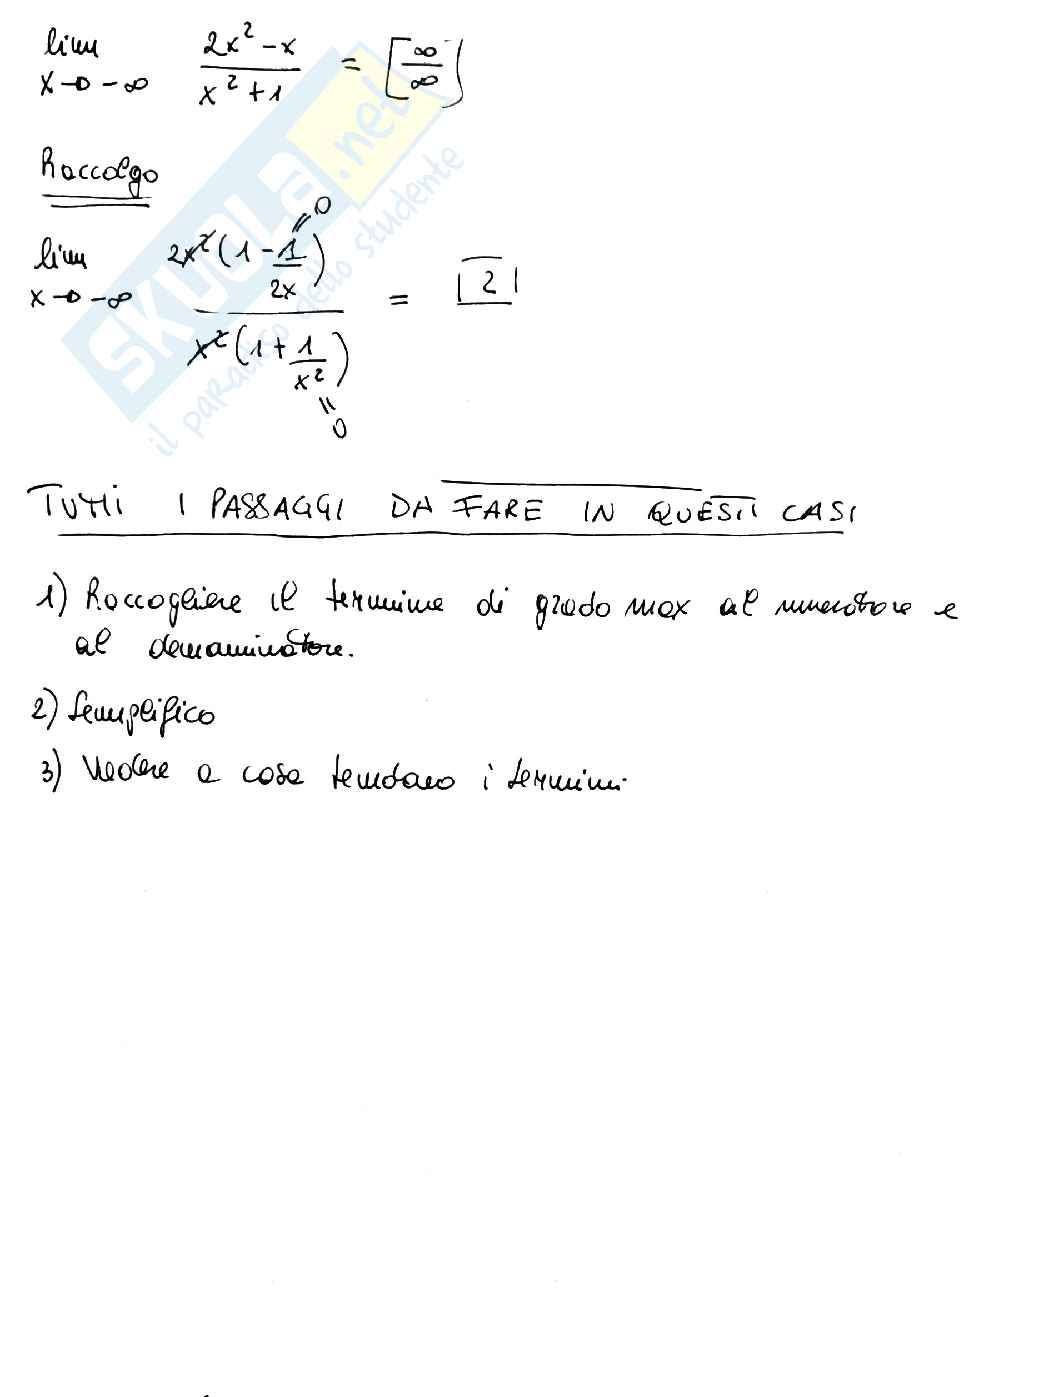 lim 2x² - x = [∞
x → -∞ x² + 1 ∞]
Raccolgo
= 0
lim 2x² (1 - 1
x → -∞ 2x) = 2
x² (1 + 1
x²)
= 0
SKUOLA.net
il paradiso dello studente
TUTTI I PASSAGGI DA FARE IN QUESTI CASI
1) Raccogliere il termine di grado max al numeratore e
al denominatore.
2) Semplifico
3) Vedere a cosa tendano i termini